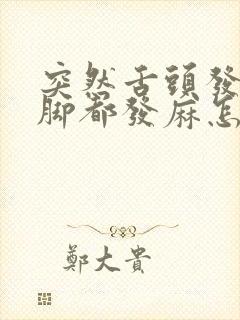 突然舌頭發
腳都發麻怎
鄭大貴